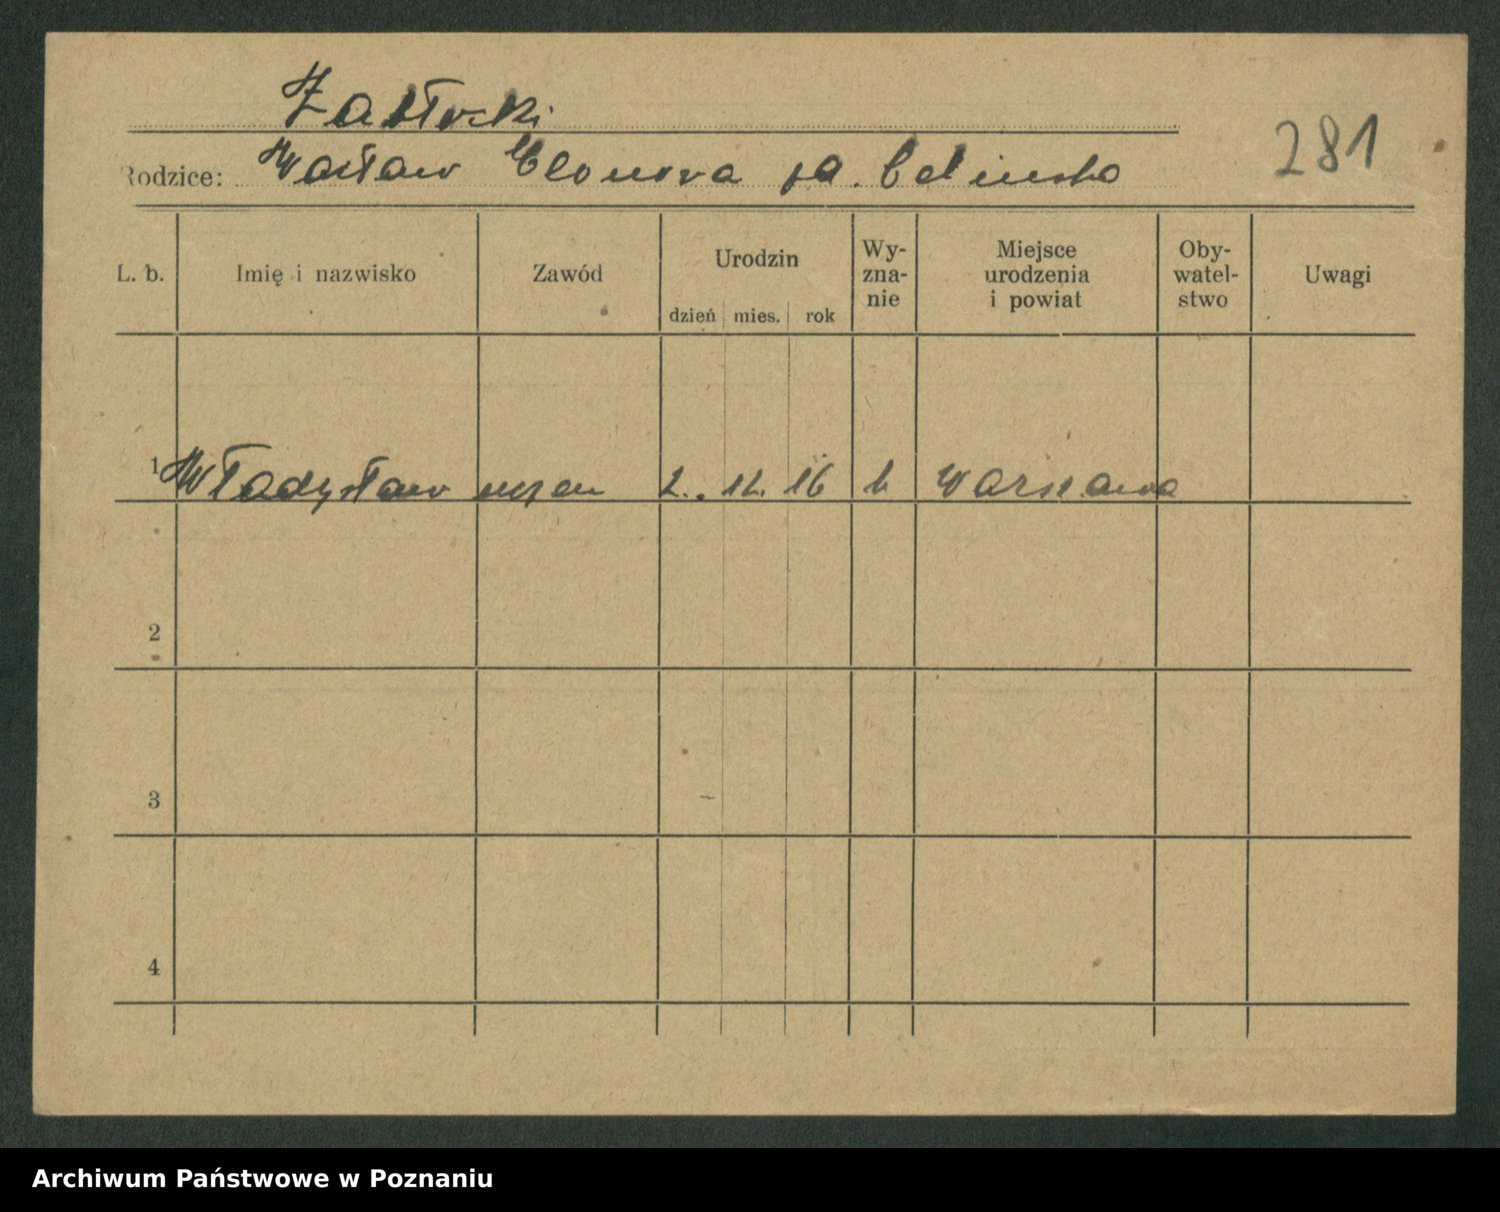 Zabłocki
281
Rodzice: Wacław Eleonora
L. b. Imię i nazwisko Zawód Urodzin dzień mies. rok Wy-zna-nie Miejsce urodzenia i powiat Oby-watel-stwo Uwagi
1 Władysław 2. 12. 16 Warszawa
2
3
4
Archiwum Państwowe w Poznaniu